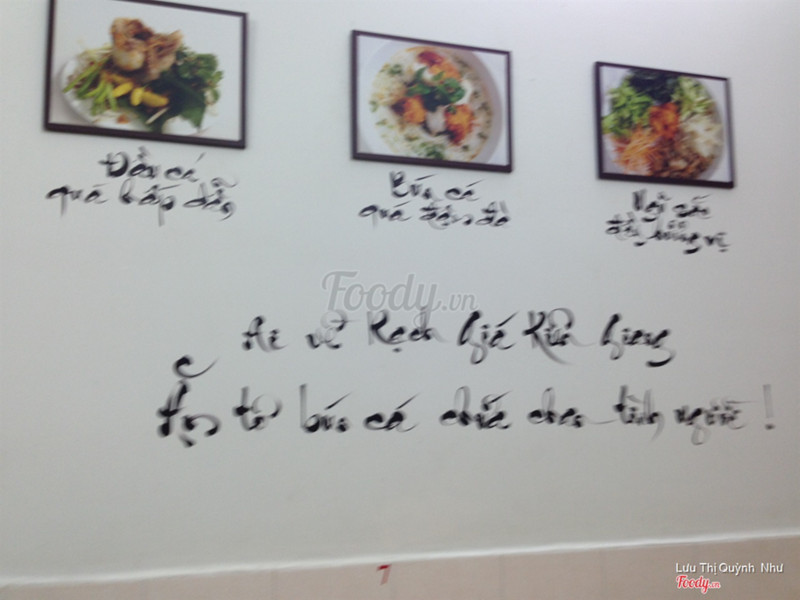 Đầu cá
quá hấp dẫn
Bún cá
quá đậm đà
đầy hương vị
Foody.vn
Ai về Rạch Giá Kiên Giang
Ăn tô bún cá chứa chan tình người !
7
Lưu Thị Quỳnh Như
Foody.vn